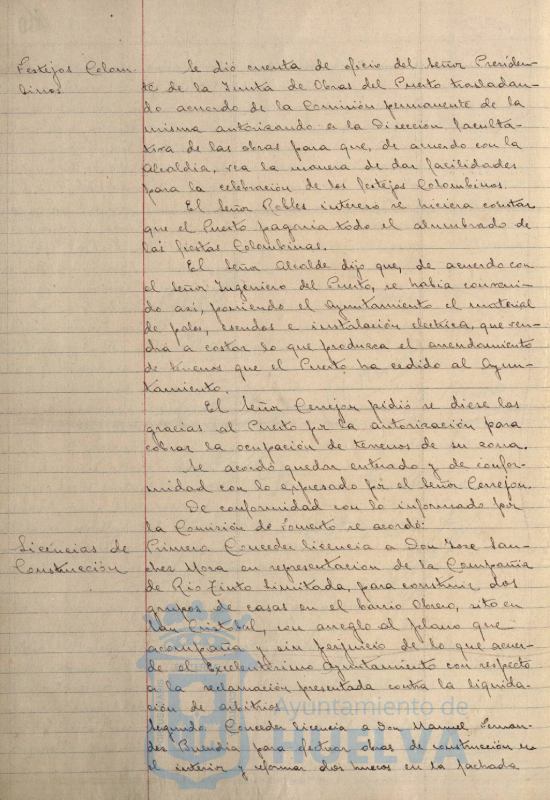 Festejos Colom-
binos
Se dió cuenta de oficio del Señor Presiden-
te de la Junta de Obras del Puerto trasladan-
do acuerdo de la Comisión permanente de la
misma autorizando a la Dirección faculta-
tiva de las obras para que, de acuerdo con la
Alcaldia, vea la manera de dar facilidades
para la celebración de los festejos Colombinos.
El Señor Robles intereso se hiciera constar
que el Puerto pagaria todo el alumbrado de
las fiestas Colombinas.
El Señor Alcalde dijo que, de acuerdo con
el Señor Ingeniero del Puerto, se habia conveni-
do asi, poniendo el Ayuntamiento el material
de palos, escudos e instalación electrica, que ven-
drá a costar lo que produzca el arrendamiento
de terrenos que el Puerto ha cedido al Ayun-
tamiento.
El Señor Cerrejon pidió se diese las
gracias al Puerto por la autorización para
cobrar la ocupación de terrenos de su zona.
Se acordó quedar enterado y de confor-
midad con lo expresado por el Señor Cerrejon.
De conformidad con lo informado por
la Comisión de Fomento se acordó:
Licencias de
Construcción
Primero Conceder licencia a Don Jose San-
chez Mora en representacion de la Compañia
de Rio Tinto Limitada, para construir dos
grupos de casas en el barrio Obrero, sito en
San Cristobal, con arreglo al plano que
acompaña y sin perjuicio de lo que acuer-
de el Excelentisimo Ayuntamiento con respecto
a la reclamación presentada contra la liquida-
ción de arbitrios
Segundo. Conceder licencia a Don Manuel Fernan-
dez Buendia para efectuar obras de construcción en
el interior y reformar dos huecos en la fachada
Ayuntamiento de
HUELVA